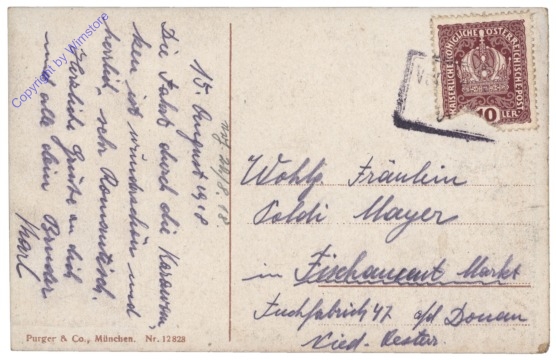 15 August 1918
Die Fahrt durch die Karawan,
ken ist wunderschön und
herrlich, sehr Romantisch.
Herzliche Grüße an dich
und alle dein Bruder
Karl
24/8. 18.
Wohlg Fräulein
Poldi Mayer
in Fischament Markt
Tuchfabrick 47 a/d Donau
Nied. Oester
KAISERLICHE KÖNIGLICHE ÖSTERREICHISCHE POST
10
LER.
Purger & Co., München. Nr. 12828
Copyright by Wimstore